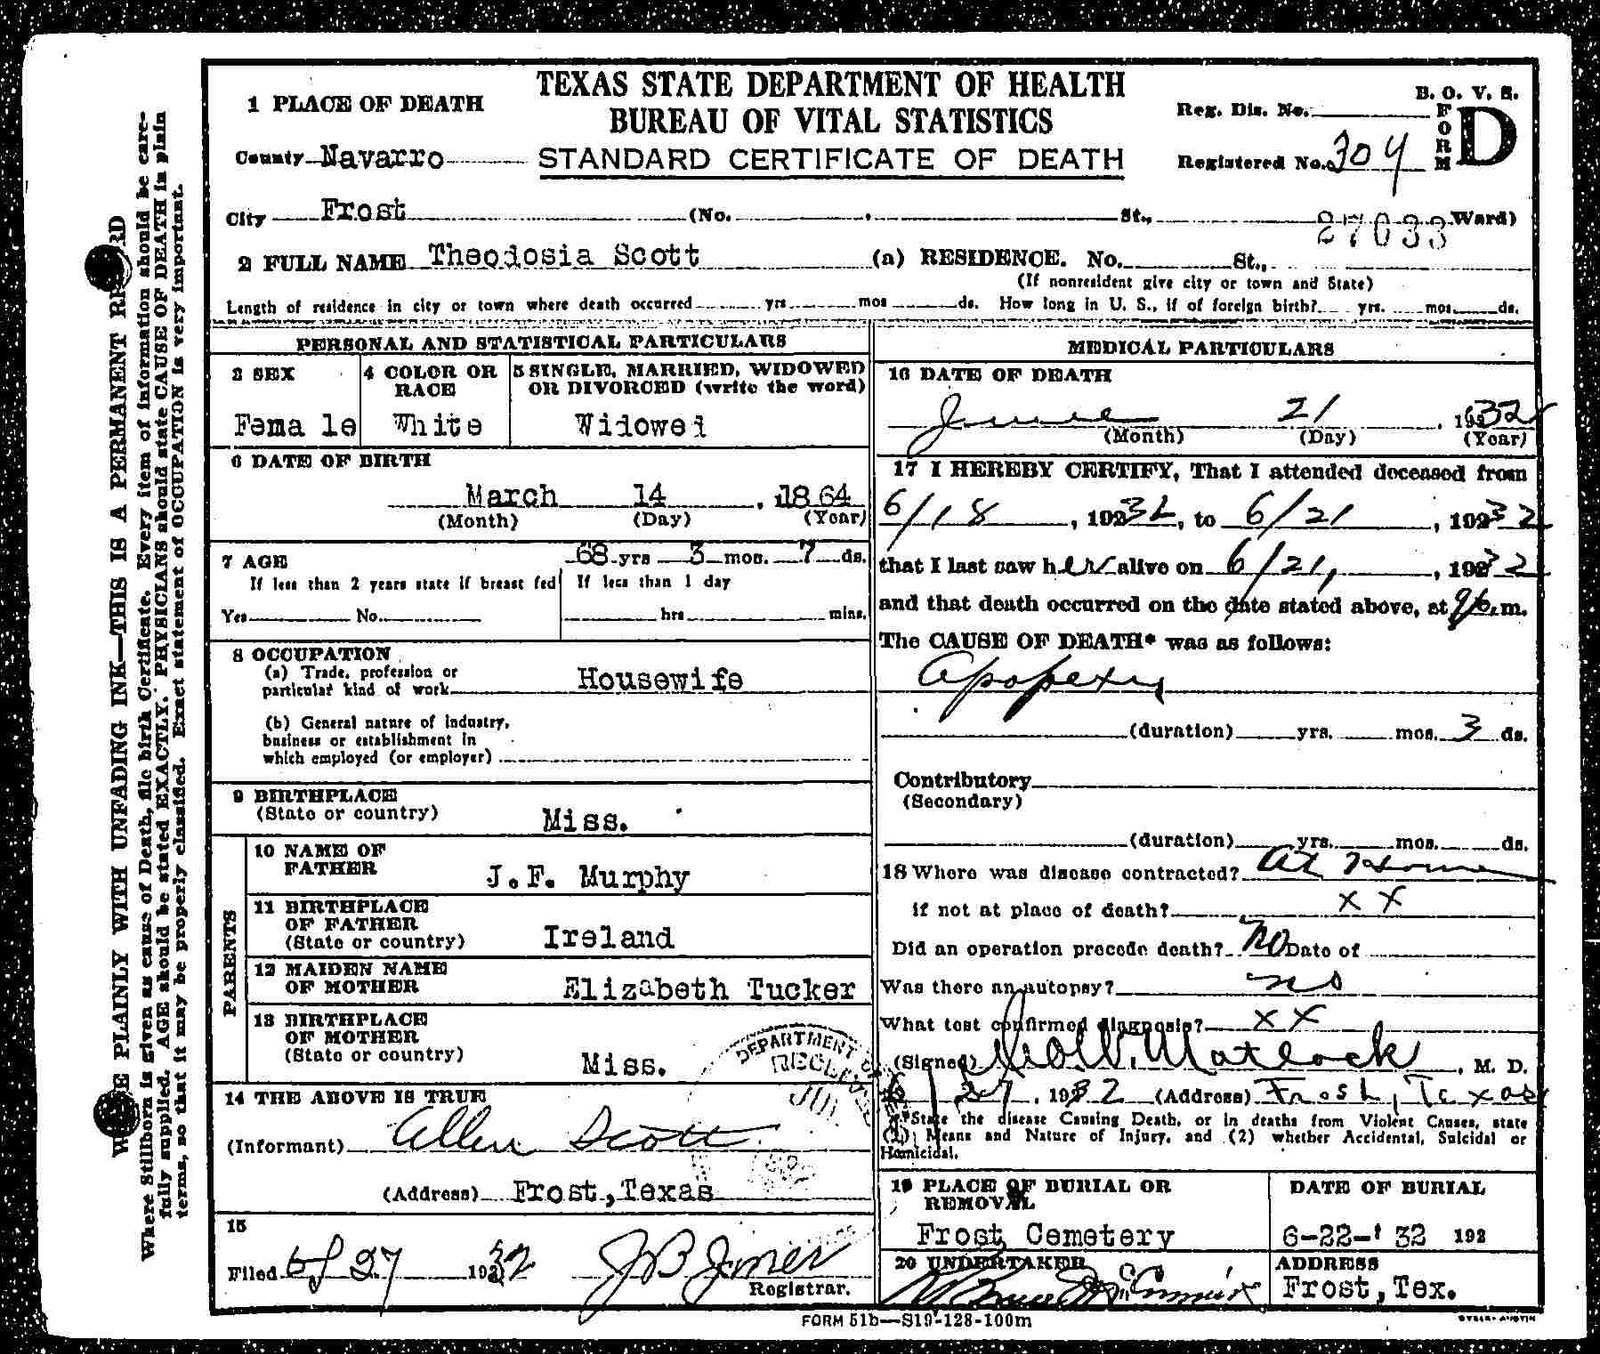 TEXAS STATE DEPARTMENT OF HEALTH
BUREAU OF VITAL STATISTICS
STANDARD CERTIFICATE OF DEATH
B. O. V. S.
FORM D
Reg. Dis. No.
Registered No. 304
1 PLACE OF DEATH
County Navarro
City Frost (No. , St., Ward)
27033
2 FULL NAME Theodosia Scott (a) RESIDENCE. No. St.,
(If nonresident give city or town and State)
Length of residence in city or town where death occurred yrs mos ds. How long in U. S., if of foreign birth? yrs. mos. ds.
PERSONAL AND STATISTICAL PARTICULARS
3 SEX
Female
4 COLOR OR RACE
White
5 SINGLE, MARRIED, WIDOWED
OR DIVORCED (write the word)
Widowed
6 DATE OF BIRTH
March 14, 1864
(Month) (Day) (Year)
7 AGE 68 yrs 3 mos. 7 ds.
If less than 2 years state if breast fed
Yes No
If less than 1 day
hrs. mins.
8 OCCUPATION
(a) Trade, profession or
particular kind of work Housewife
(b) General nature of industry,
business or establishment in
which employed (or employer)
9 BIRTHPLACE
(State or country) Miss.
PARENTS
10 NAME OF
FATHER J.F. Murphy
11 BIRTHPLACE
OF FATHER
(State or country) Ireland
12 MAIDEN NAME
OF MOTHER Elizabeth Tucker
13 BIRTHPLACE
OF MOTHER
(State or country) Miss.
14 THE ABOVE IS TRUE
(Informant) Allen Scott
(Address) Frost, Texas
DEPARTMENT OF
RECEIVED
JUL
15
Filed 6/27 1932 J B Jones
Registrar.
MEDICAL PARTICULARS
16 DATE OF DEATH
June 21, 1932
(Month) (Day) (Year)
17 I HEREBY CERTIFY, That I attended deceased from
6/18, 1932, to 6/21, 1932
that I last saw her alive on 6/21, 1932
and that death occurred on the date stated above, at 9 p.m.
The CAUSE OF DEATH* was as follows:
Apopexy
(duration) yrs. mos. 3 ds.
Contributory
(Secondary)
(duration) yrs. mos. ds.
18 Where was disease contracted? At Home
if not at place of death? x x
Did an operation precede death? No Date of
Was there an autopsy? no
What test confirmed diagnosis? x x
(Signed) Matlock, M. D.
6/27, 1932 (Address) Frost, Texas
*State the disease Causing Death, or in deaths from Violent Causes, state
(1) Means and Nature of Injury, and (2) whether Accidental, Suicidal or
Homicidal.
19 PLACE OF BURIAL OR
REMOVAL
Frost Cemetery
DATE OF BURIAL
6-22-'32 192
20 UNDERTAKER
ADDRESS
Frost, Tex.
FORM 51b—S19-128-100m
WRITE PLAINLY WITH UNFADING INK—THIS IS A PERMANENT RECORD
Where Stillborn is given as cause of Death, file birth Certificate. Every item of information should be care-
fully supplied. AGE should be stated EXACTLY. PHYSICIANS should state CAUSE OF DEATH in plain
terms, so that it may be properly classified. Exact statement of OCCUPATION is very important.